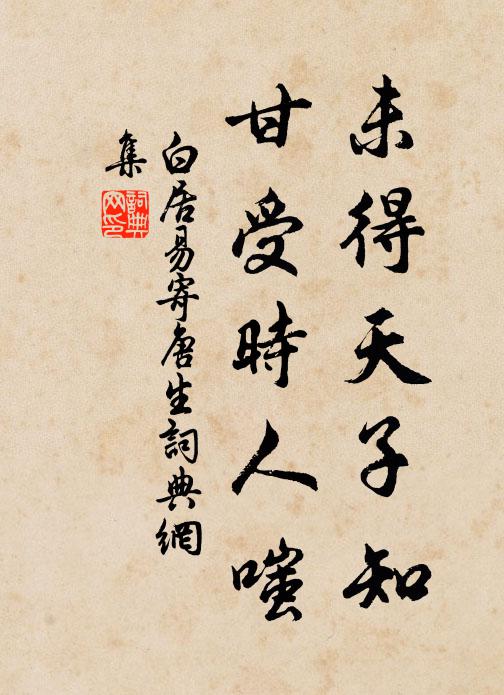 未得天子知
甘受時人嗤
白居易寄唐生詞典網
集
詞典
网印